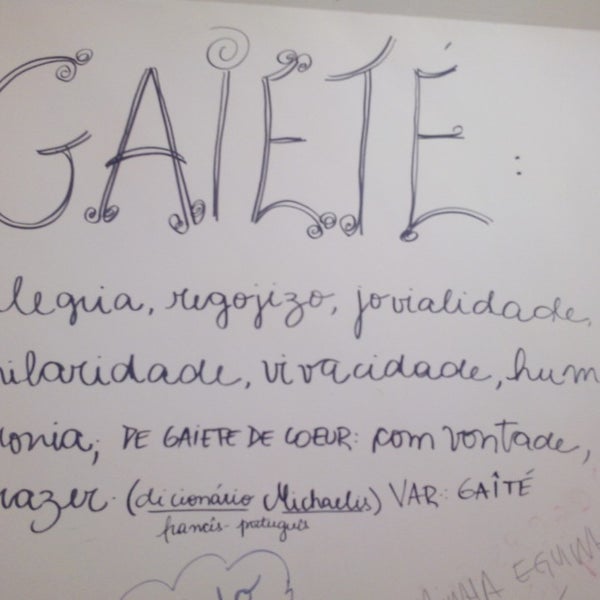 GAIETÉ:
legria, regojizo, jovialidade,
hilaridade, vivacidade, hum
onia; DE GAIETE DE COEUR: com vontade,
razer. (dicionário Michaelis) VAR: GAÎTÉ
francês-português